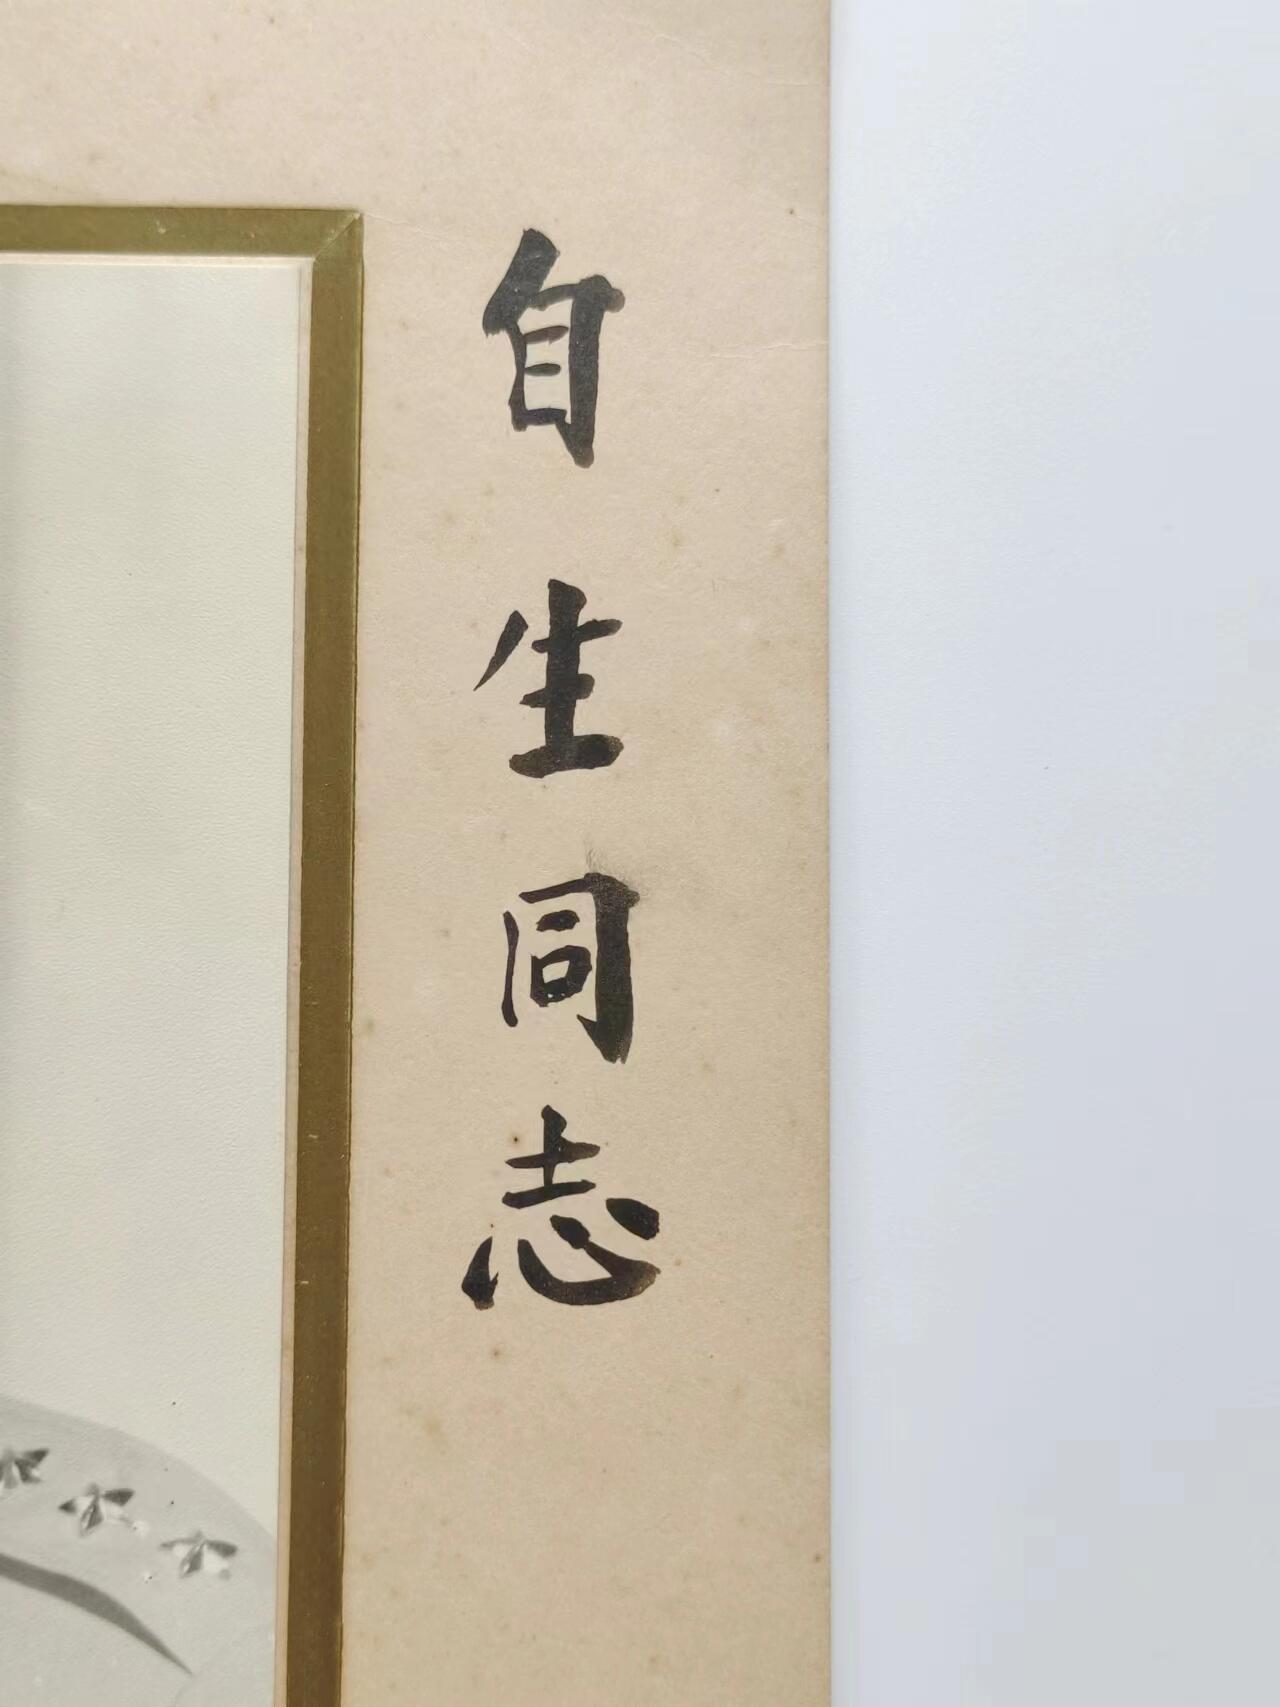 自生同志